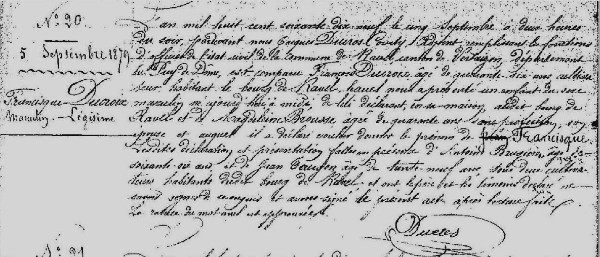 N°. 20.
5 Septembre 1879
Francisque Ducros
Masculin - Légitime
L'an mil huit cent soixante dix neuf le cinq Septembre à deux heures
du soir, pardevant nous Ducros adjoint remplissant les fonctions
d'officier de l'état civil de la Commune de Ravel canton de Vertaizon, département
du Puy de Dôme, est comparu François Ducros, âgé de quarante dix ans cultiva
teur, habitant le bourg de Ravel, lequel nous a présenté un enfant du sexe
masculin né aujourd'hui à midi, de lui déclarant, en sa maison, audit bourg de
Ravel et de Magdeleine âgée de quarante ans sans profession, son
épouse et auquel il a déclaré vouloir donner le prénom de Francisque
lesdites déclaration et présentation faites en présence d'Antoine âgé de
soixante six ans, et de Jean âgé de trente neuf ans tous deux cultiva
teurs habitants dudit bourg de Ravel, et ont le père et les témoins déclaré ne
savoir signer de ce enquis et avons signé le présent acte après lecture faite.
La rature du mot nul est approuvée.
Ducros
N°. 21